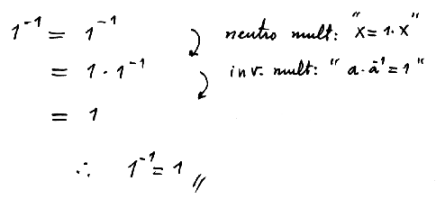 1⁻¹ = 1⁻¹
neutro mult: "x = 1·x"
= 1 · 1⁻¹
inv. mult: "a·a⁻¹ = 1"
= 1
∴ 1⁻¹ = 1 //